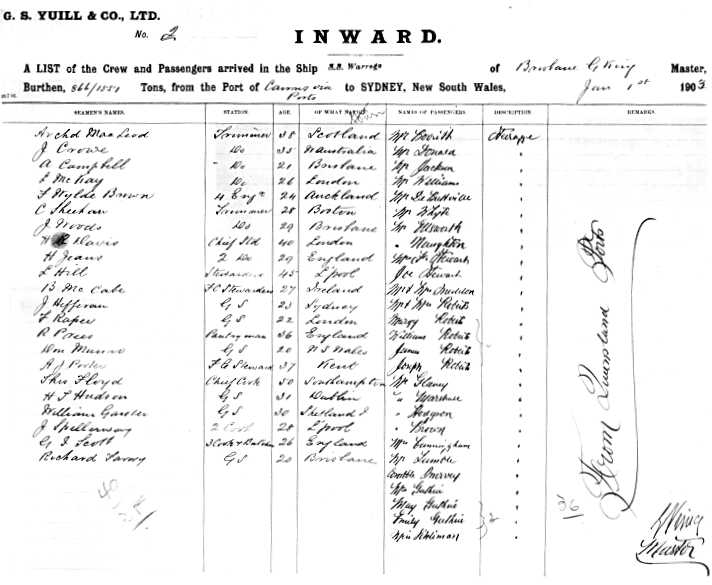 G. S. YUILL & CO., LTD.
No. 2
INWARD.
A LIST of the Crew and Passengers arrived in the Ship S.S. Warrego of Brisbane G King Master,
Burthen, 866/1551 Tons, from the Port of Cairns via Ports to SYDNEY, New South Wales, Jan 1st 1903
SEAMEN'S NAMES. STATION. AGE. OF WHAT NATION NAMES OF PASSENGERS DESCRIPTION REMARKS.
Archd MacLeod Trimmer 38 Scotland Mr Steerage
J Crowe Do 35 Mr
A Campbell Do 21 Brisbane Mr Jackson "
L McKay Do 26 London Mr Williams "
F Wylde Brown 4 Engr 24 Auckland Mr "
C Sheehan Trimmer 28 Boston Mr Whyte "
J Woods Do 29 Brisbane Mr Ellsworth "
H Davis Chief Std 40 London " Naughton "
H Jeans 2 Do 29 England Stewart "
L Hill Stewardess 45 L'pool Joe Stewart "
B McCabe F C Stewardess 27 Ireland Mr & Mrs "
J Hefferan G S 23 Sydney Mr & Mrs Roberts "
F Raper G S 22 London Roberts "
R Prees Pantryman 36 England William Roberts "
Wm Munro G S 20 N S Wales James Roberts "
A J Porter F C Steward 37 Kent Joseph Roberts "
Thos Floyd Chief Cook 50 Southampton Mr "
H T Hudson G S 31 Dublin " "
William G S 30 Shetland I " Hodgson "
J 2 Cook 28 L'pool " Brown "
G I Scott 3 Cook & Butcher 26 England Mrs Cunningham "
Richard G S 20 Brisbane Mr "
Mrs Guthrie "
May Guthrie "
Emily Guthrie "
Miss "
36
From Queensland Ports
G King
Master